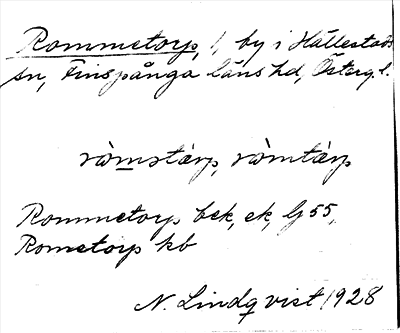 Rommetorp, 1, by i Hällestads
sn, Finspånga läns hd, Österg. l.
ròmstàrp, ròmtàrp
Rommetorp bek, ek, G 55,
Rometorp kb
N. Lindqvist 1928